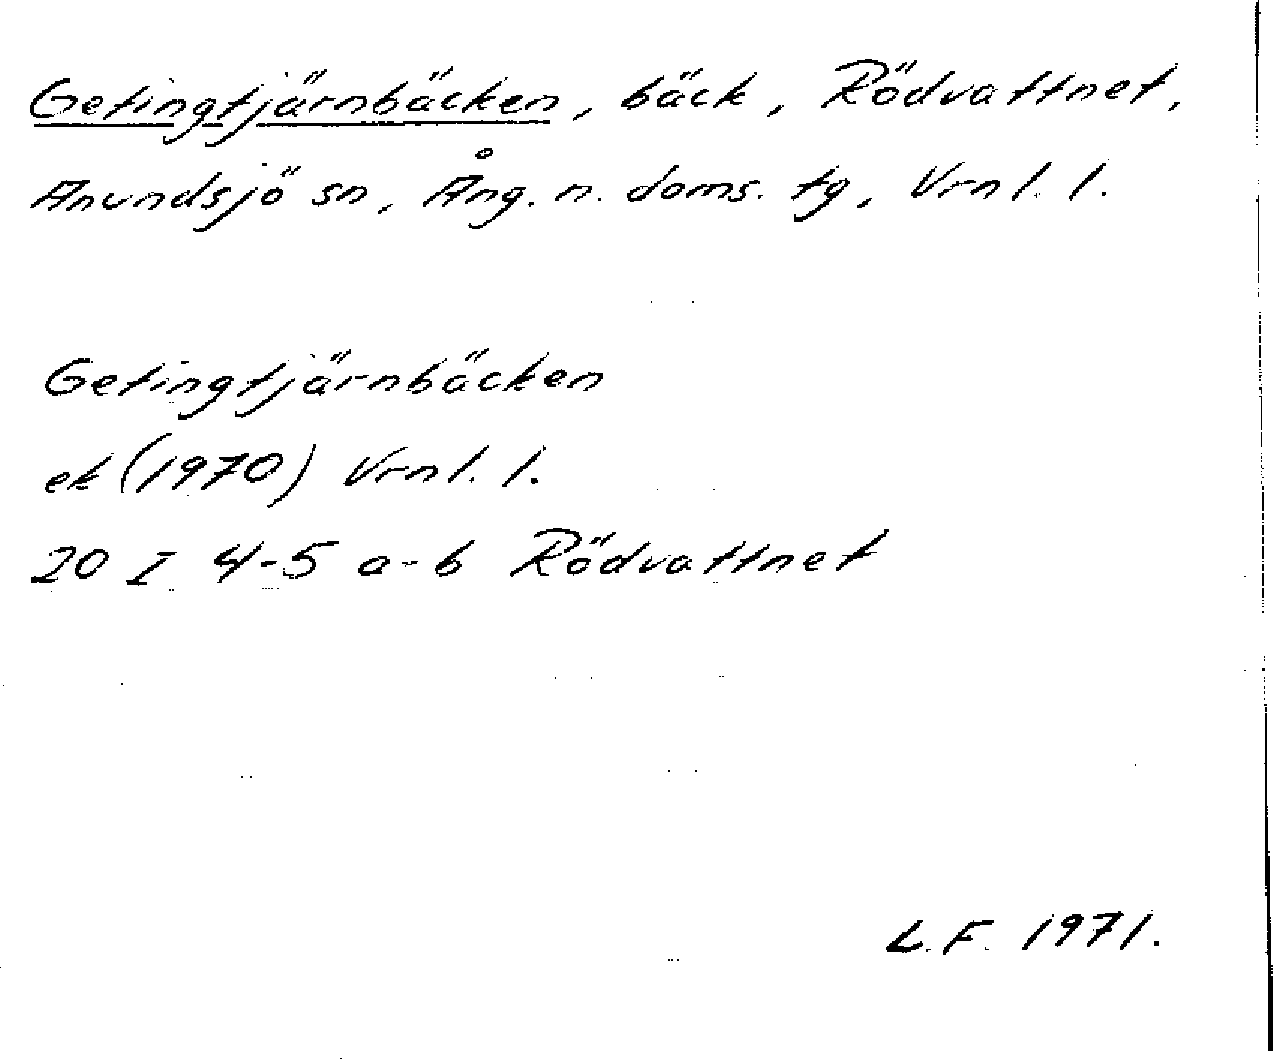 Getingtjärnbäcken, bäck, Rödvattnet,
Anundsjö sn, Ång. n. doms. tg, Vrnl. l.
Getingtjärnbäcken
ek (1970) Vrnl. l.
20 I 4-5 a-b Rödvattnet
L.F. 1971.